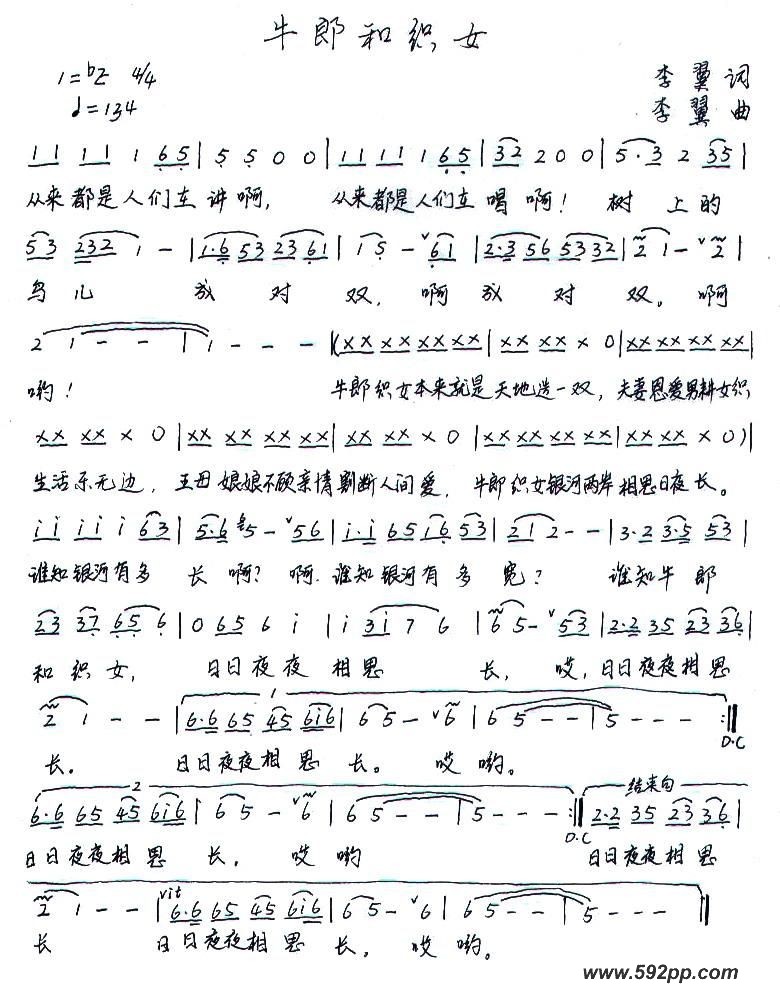 牛郎和织女
1=bE 4/4 李翼词
♩=134 李翼曲
1 1 1 1 1 6 5 | 5 5 0 0 | 1 1 1 1 1 6 5 | 3 2 2 0 0 | 5 · 3 2 3 5 |
从来都是人们在讲啊， 从来都是人们在唱啊！ 树上的
5 3 2 3 2 1 - | 1 · 6 5 3 2 3 6 1 | 1 5 - v 6 1 | 2 · 3 5 6 5 3 3 2 | 2 1 - v 2 |
鸟儿 成对双，啊成对双。啊
2 1 - - | 1 - - - | (X X X X X X X X | X X X X X 0 | X X X X X X X X |
哟！ 牛郎织女本来就是天地造一双，夫妻恩爱男耕女织
X X X X X 0 | X X X X X X X X | X X X X X 0 | X X X X X X X X | X X X X X 0) |
生活乐无边，王母娘娘不顾亲情割断人间爱，牛郎织女银河两岸相思日夜长。
i i i i i 6 3 | 5 · 6 5 - v 5 6 | i · i 6 5 i 6 5 3 | 2 1 2 - - | 3 · 2 3 · 5 5 3 |
谁知银河有多长啊？啊.谁知银河有多宽？ 谁知牛郎
2 3 3 7 6 5 6 | 0 6 5 6 i | i 3 i 7 6 | 6 5 - v 5 3 | 2 · 2 3 5 2 3 3 6 |
和织女， 日日夜夜相思长，哎，日日夜夜相思
2 1 - - | 1 6 · 6 6 5 4 5 6 i 6 | 6 5 - v 6 | 6 5 - - | 5 - - - :‖ D.C
长。 日日夜夜相思长。哎哟。
2 6 · 6 6 5 4 5 6 i 6 | 6 5 - v 6 | 6 5 - - | 5 - - - :‖ D.C 结束句 2 · 2 3 5 2 3 3 6 |
日日夜夜相思长，哎哟 日日夜夜相思
2 1 - - | vit 6 · 6 6 5 4 5 6 i 6 | 6 5 - v 6 | 6 5 - - | 5 - - - ‖
长 日日夜夜相思长，哎哟。
www.592pp.com